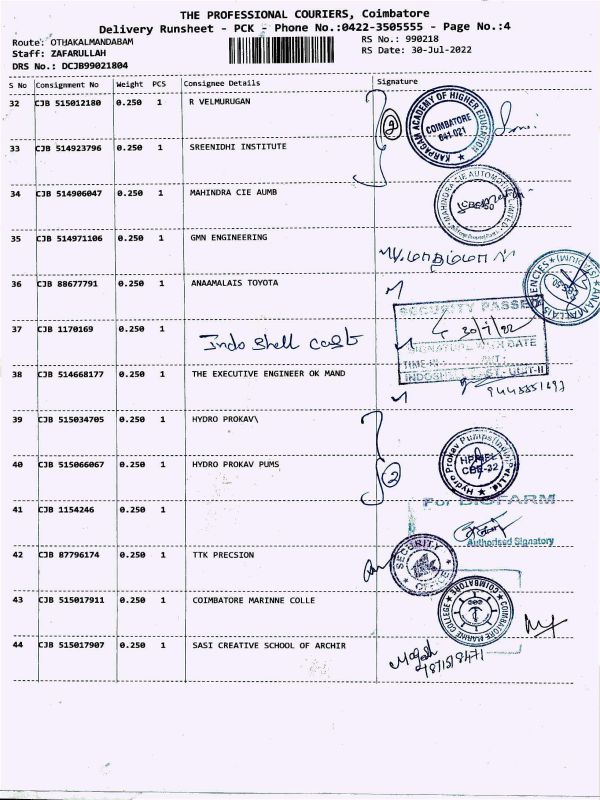 THE PROFESSIONAL COURIERS, Coimbatore
Delivery Runsheet - PCK - Phone No.:0422-3505555 - Page No.:4
Route: OTHAKALMANDABAM RS No.: 990218
Staff: ZAFARULLAH RS Date: 30-Jul-2022
DRS No.: DCJB99021804
S No Consignment No Weight PCS Consignee Details Signature
32 CJB 515012180 0.250 1 R VELMURUGAN
2
KARPAGAM ACADEMY OF HIGHER EDUCATION
COIMBATORE
641 021
33 CJB 514923796 0.250 1 SREENIDHI INSTITUTE
34 CJB 514906047 0.250 1 MAHINDRA CIE AUMB
35 CJB 514971106 0.250 1 GMN ENGINEERING
36 CJB 88677791 0.250 1 ANAAMALAIS TOYOTA
SECURITY PASSED
30/7/22
37 CJB 1170169 0.250 1 Indo Shell cast
38 CJB 514668177 0.250 1 THE EXECUTIVE ENGINEER OK MAND
39 CJB 515034705 0.250 1 HYDRO PROKAV\
40 CJB 515066067 0.250 1 HYDRO PROKAV PUMS
2
Hydro Prokav Pumps (India) Pvt. Ltd
41 CJB 1154246 0.250 1
For BIOFARM
Authorised Signatory
42 CJB 87796174 0.250 1 TTK PRECSION
SECURITY OFFICE
43 CJB 515017911 0.250 1 COIMBATORE MARINNE COLLE
COIMBATORE MARINE COLLEGE COIMBATORE
44 CJB 515017907 0.250 1 SASI CREATIVE SCHOOL OF ARCHIR